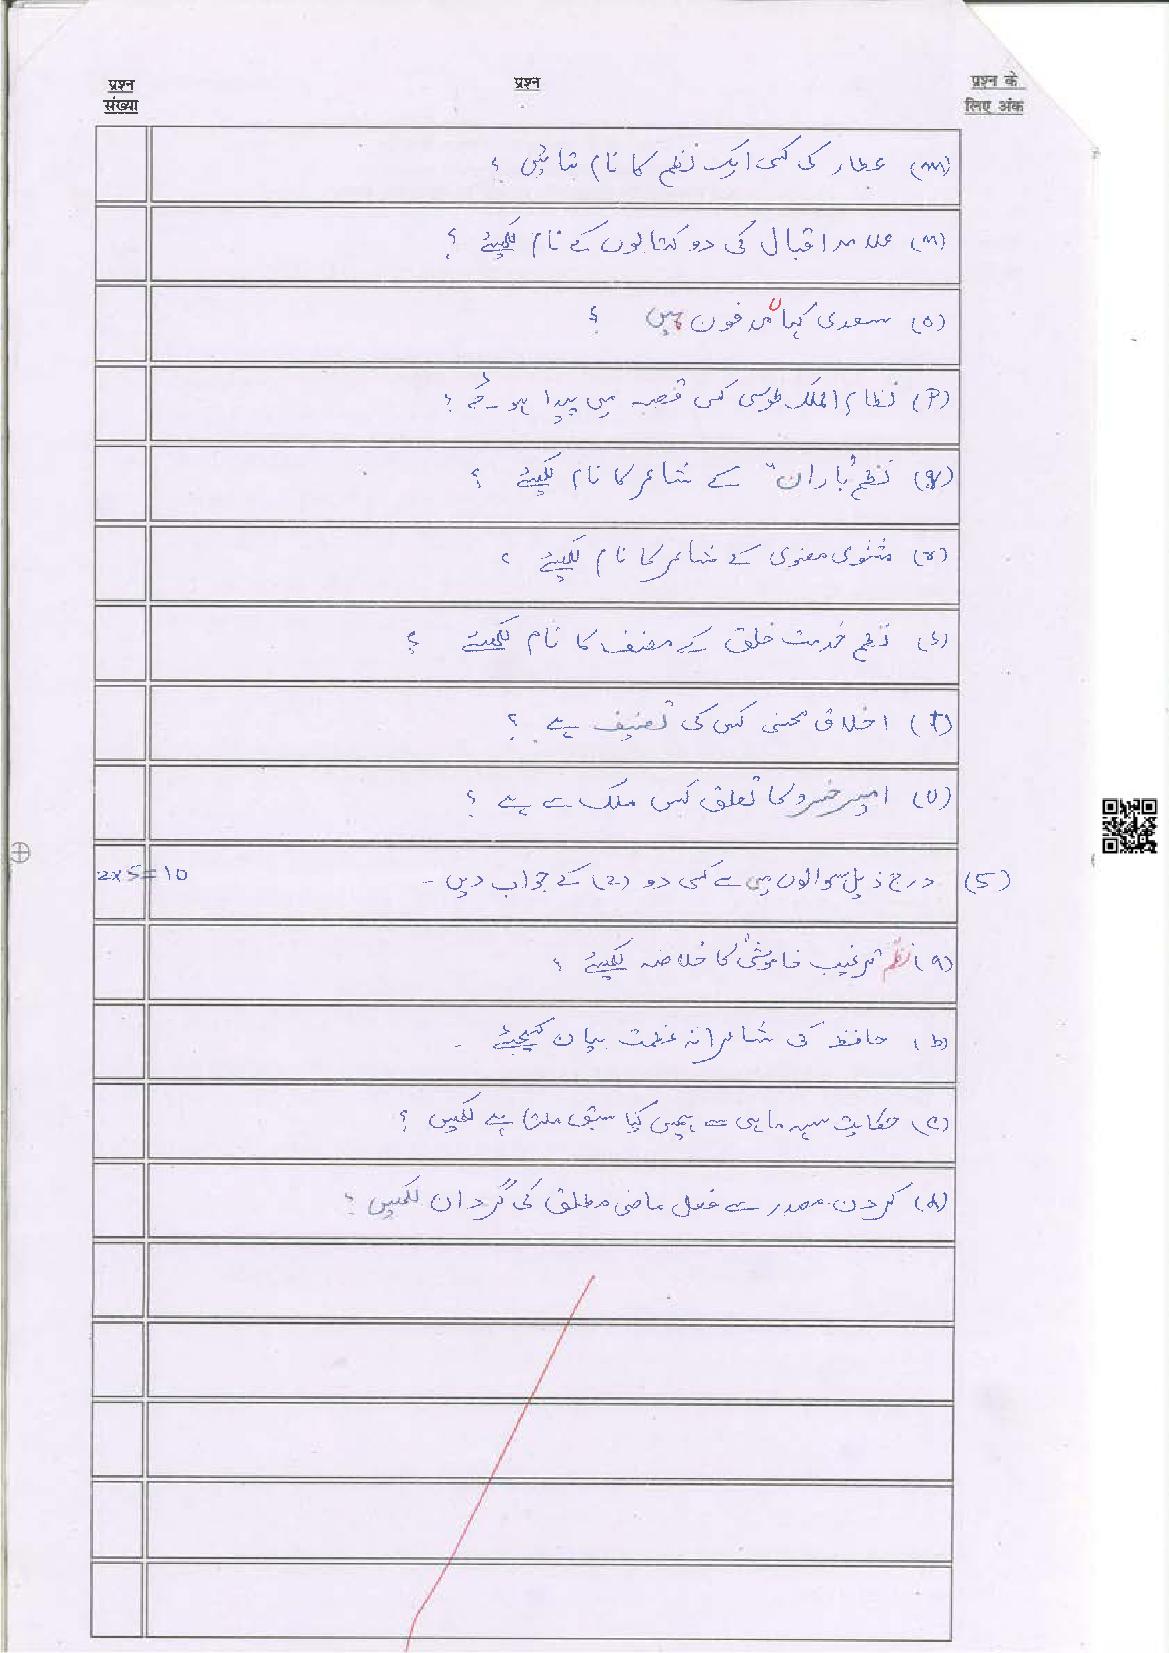 प्रश्न संख्या
प्रश्न
प्रश्न के लिए अंक
(m) عطار کی کسی ایک نظم کا نام بتائیں ؟
(n) علامہ اقبال کی دو کتابوں کے نام لکھیئے ؟
(o) سعدی کہاں مدفون ہیں ؟
(p) نظام الملک طوسی کس قصبہ میں پیدا ہوئے ؟
(q) نظم "باران" کے شاعر کا نام لکھیئے ؟
(r) مثنوی معنوی کے شاعر کا نام لکھیئے ؟
(s) نظم خدمت خلق کے مصنف کا نام لکھیئے ؟
(t) اخلاق محسنی کس کی تصنیف ہے ؟
(u) امیر خسرو کا تعلق کس ملک سے ہے ؟
(5) درج ذیل سوالوں میں سے کسی دو (2) کے جواب دیں ۔ 2x5=10
(a) نظم "ترغیب خاموشی" کا خلاصہ لکھیئے ؟
(b) حافظ کی شاعرانہ عظمت بیان کیجیئے ۔
(c) حکایت سہ ماہی سے ہمیں کیا سبق ملتا ہے لکھیں ؟
(d) کردن مصدر سے فعل ماضی مطلق کی گردان لکھیں ؟